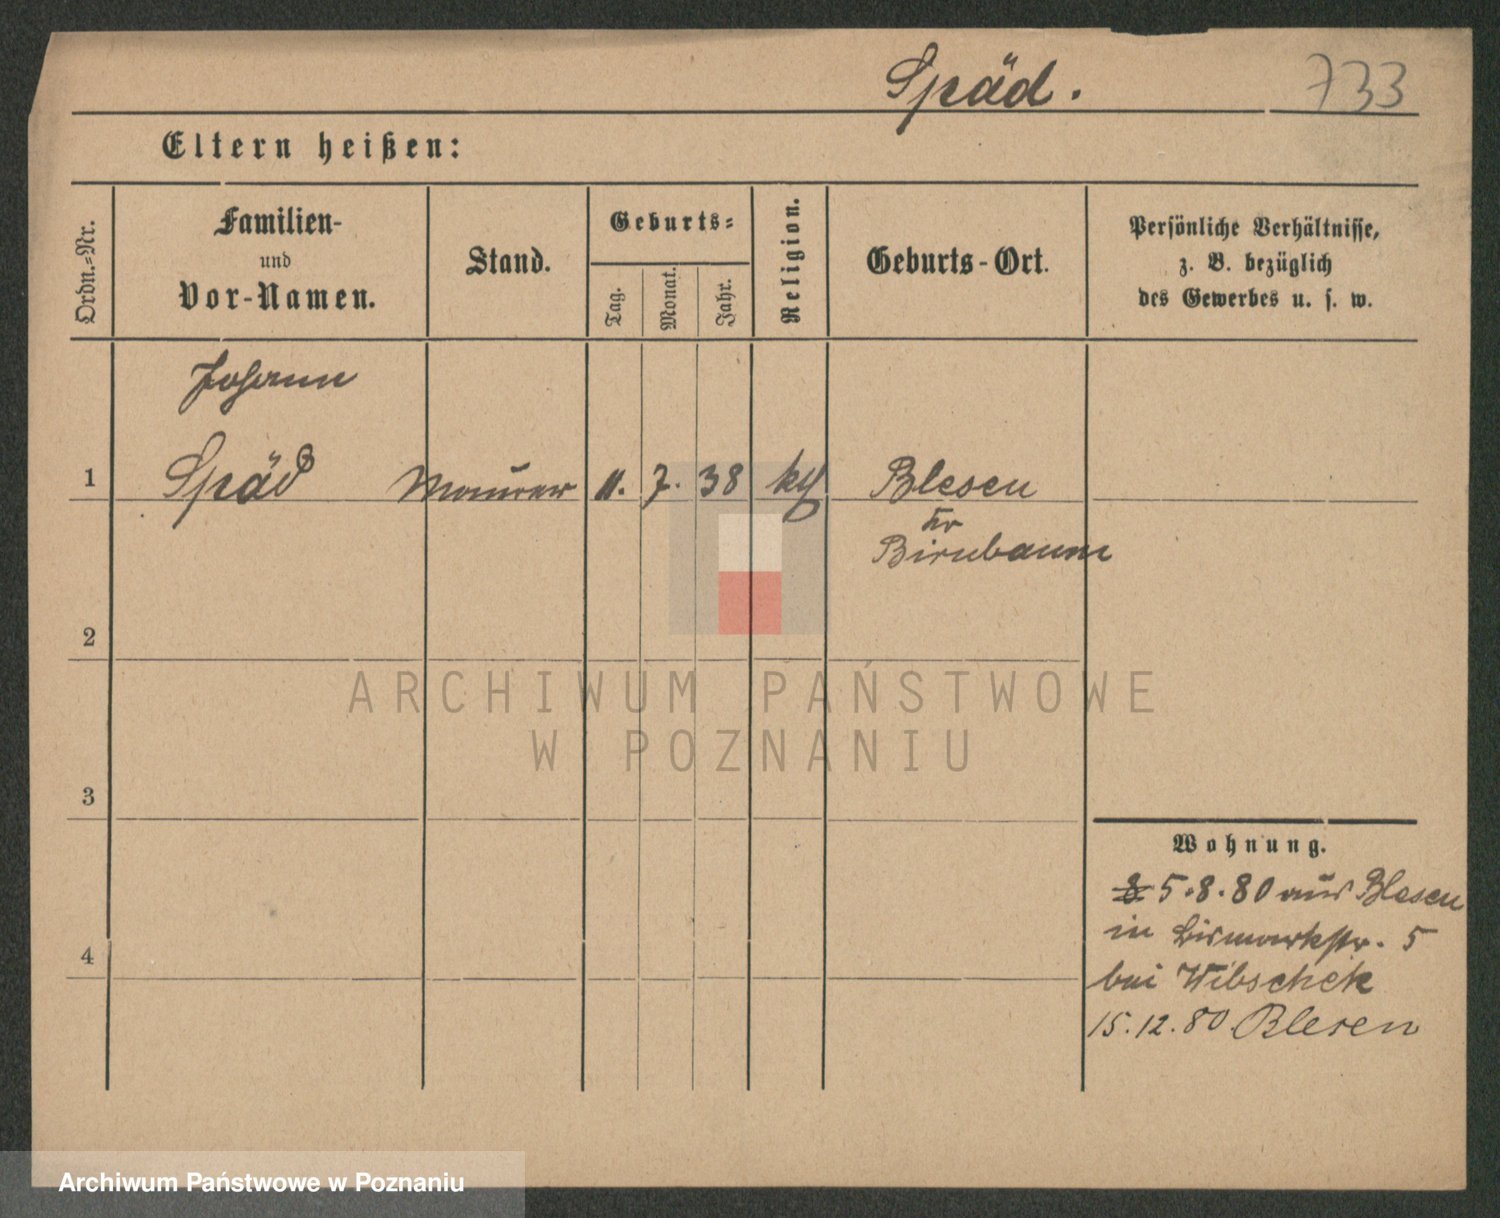 Späd. 733
Eltern heißen:
Ordn.-Nr.
Familien-
und
Vor-Namen.
Stand.
Geburts-
Tag.
Monat.
Jahr.
Religion.
Geburts-Ort.
Persönliche Verhältnisse,
z. B. bezüglich
des Gewerbes u. s. w.
Johann
1 Späd Maurer 11. 7. 38 kth Blesen
Kr
Birnbaum
2
3
4
Wohnung.
8 5.8.80 aus Blesen
in Bismarkstr. 5
bei Wibscheck
15.12.80 Blesen
ARCHIWUM PAŃSTWOWE
W POZNANIU
Archiwum Państwowe w Poznaniu